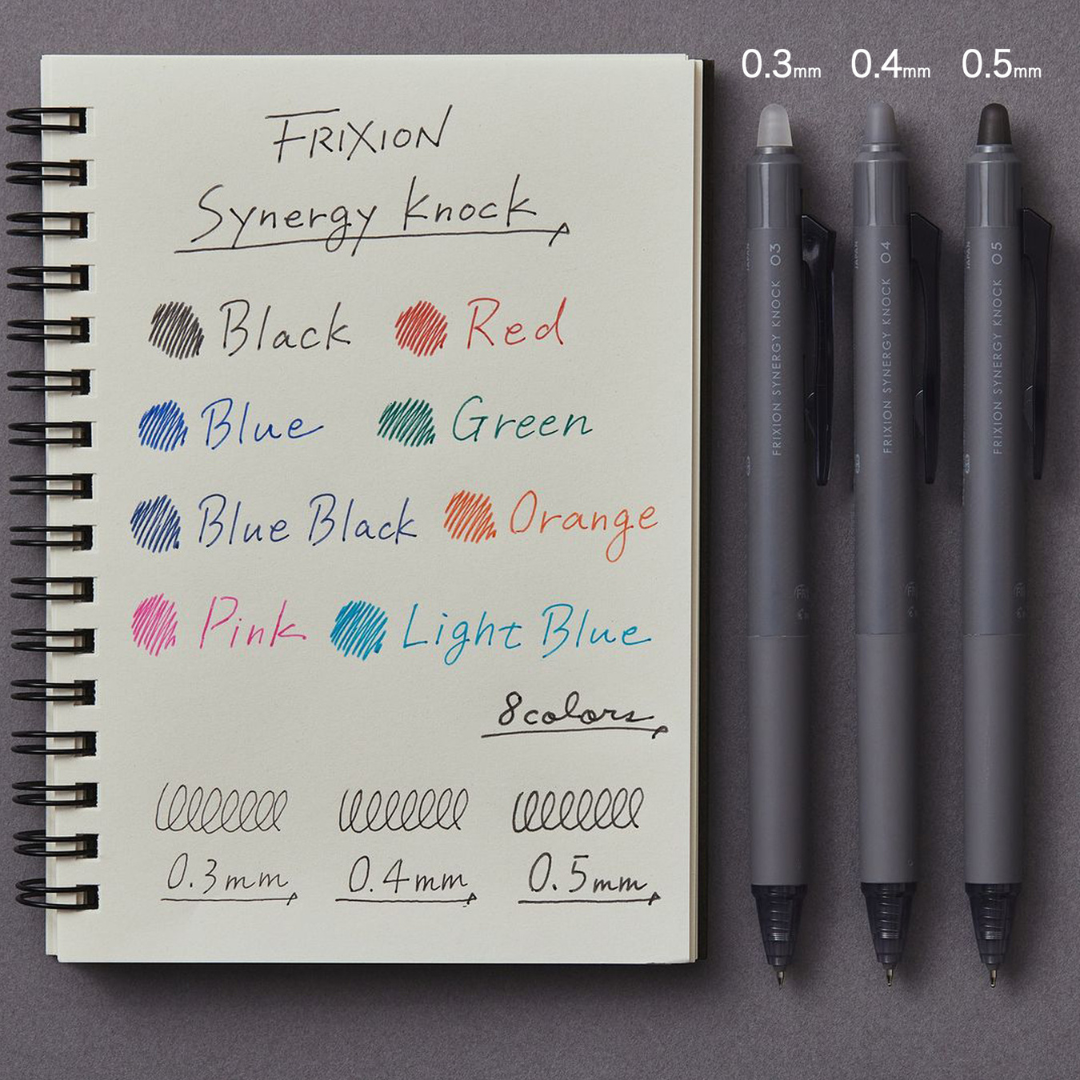 0.3mm 0.4mm 0.5mm
FRIXION
Synergy Knock
Black Red
Blue Green
Blue Black Orange
Pink Light Blue
8colors
0.3mm 0.4mm 0.5mm
FRIXION SYNERGY KNOCK 03
FRIXION SYNERGY KNOCK 04
FRIXION SYNERGY KNOCK 05